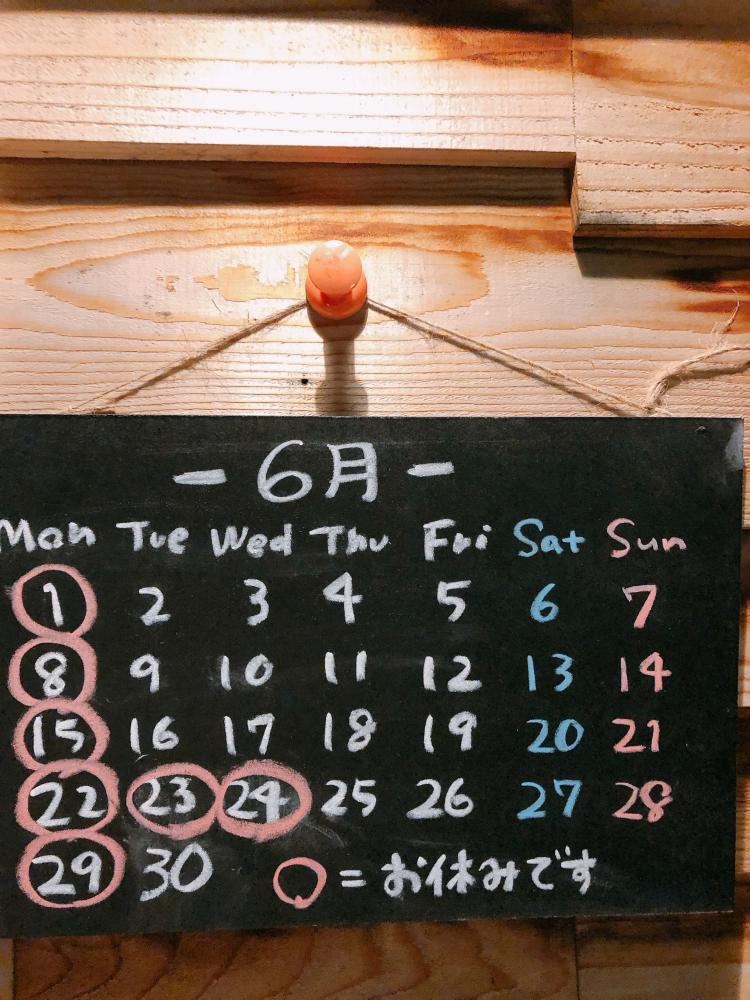 - 6月 -
Mon Tue Wed Thu Fri Sat Sun
1 2 3 4 5 6 7
8 9 10 11 12 13 14
15 16 17 18 19 20 21
22 23 24 25 26 27 28
29 30 ○ = お休みです